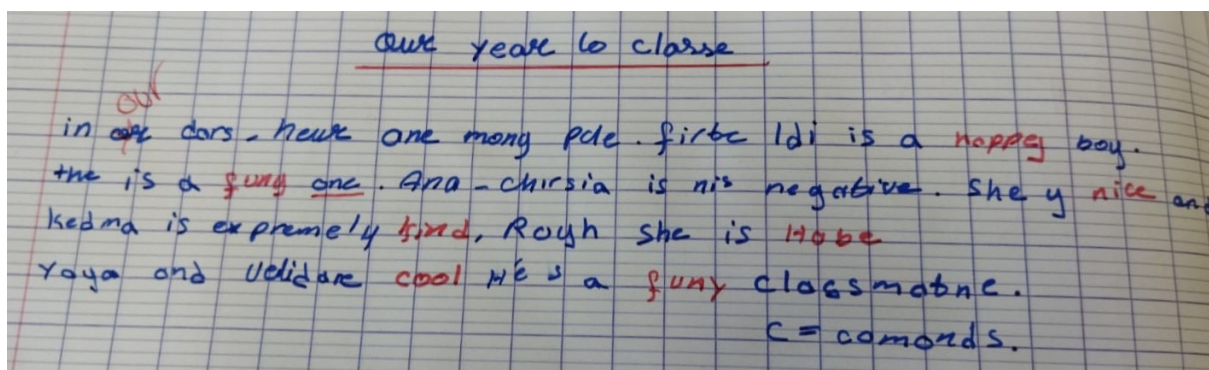 Our year to classe
our
in dars - heure one mong pde. firbc Idi is a happy boy.
the is a funy one. Ana - chirsia is nis negative. She y nice and
Kedma is expremely kind, Royh she is Hobe
Yaya and Velid are cool He's a funy classmatne.
C = comonds.